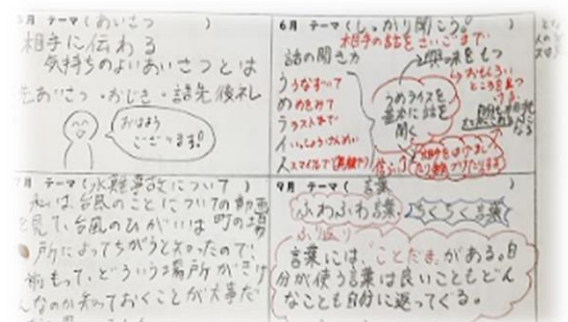 5月 テーマ(あいさつ)
相手に伝わる
気持ちのよいあいさつとは
あいさつ・おじぎ・語先後礼
おはよう
ございます!
6月 テーマ(しっかり聞こう。)
相手の話をさいごまで
話の聞き方
う うなずいて
め めをみて
ラ ラストまで
イ いっしょうけんめい
ス スマイルで
興味をもつ
おもしろい
ところを見つ
ける
うめライスを
基本に話を
聞く
7月 テーマ(水難事故について)
私は、台風のことについての動画
を見て、台風のひがいは町の場
所によってちがうと知ったので、
前もって、どういう場所がきけ
んなのか知っておくことが大事だ
9月 テーマ(言葉
ふわふわ言葉、ちくちく言葉
ふり返り
言葉には、"ことだま"がある。自
分が使う言葉は良いこともどん
なことも自分に返ってくる。